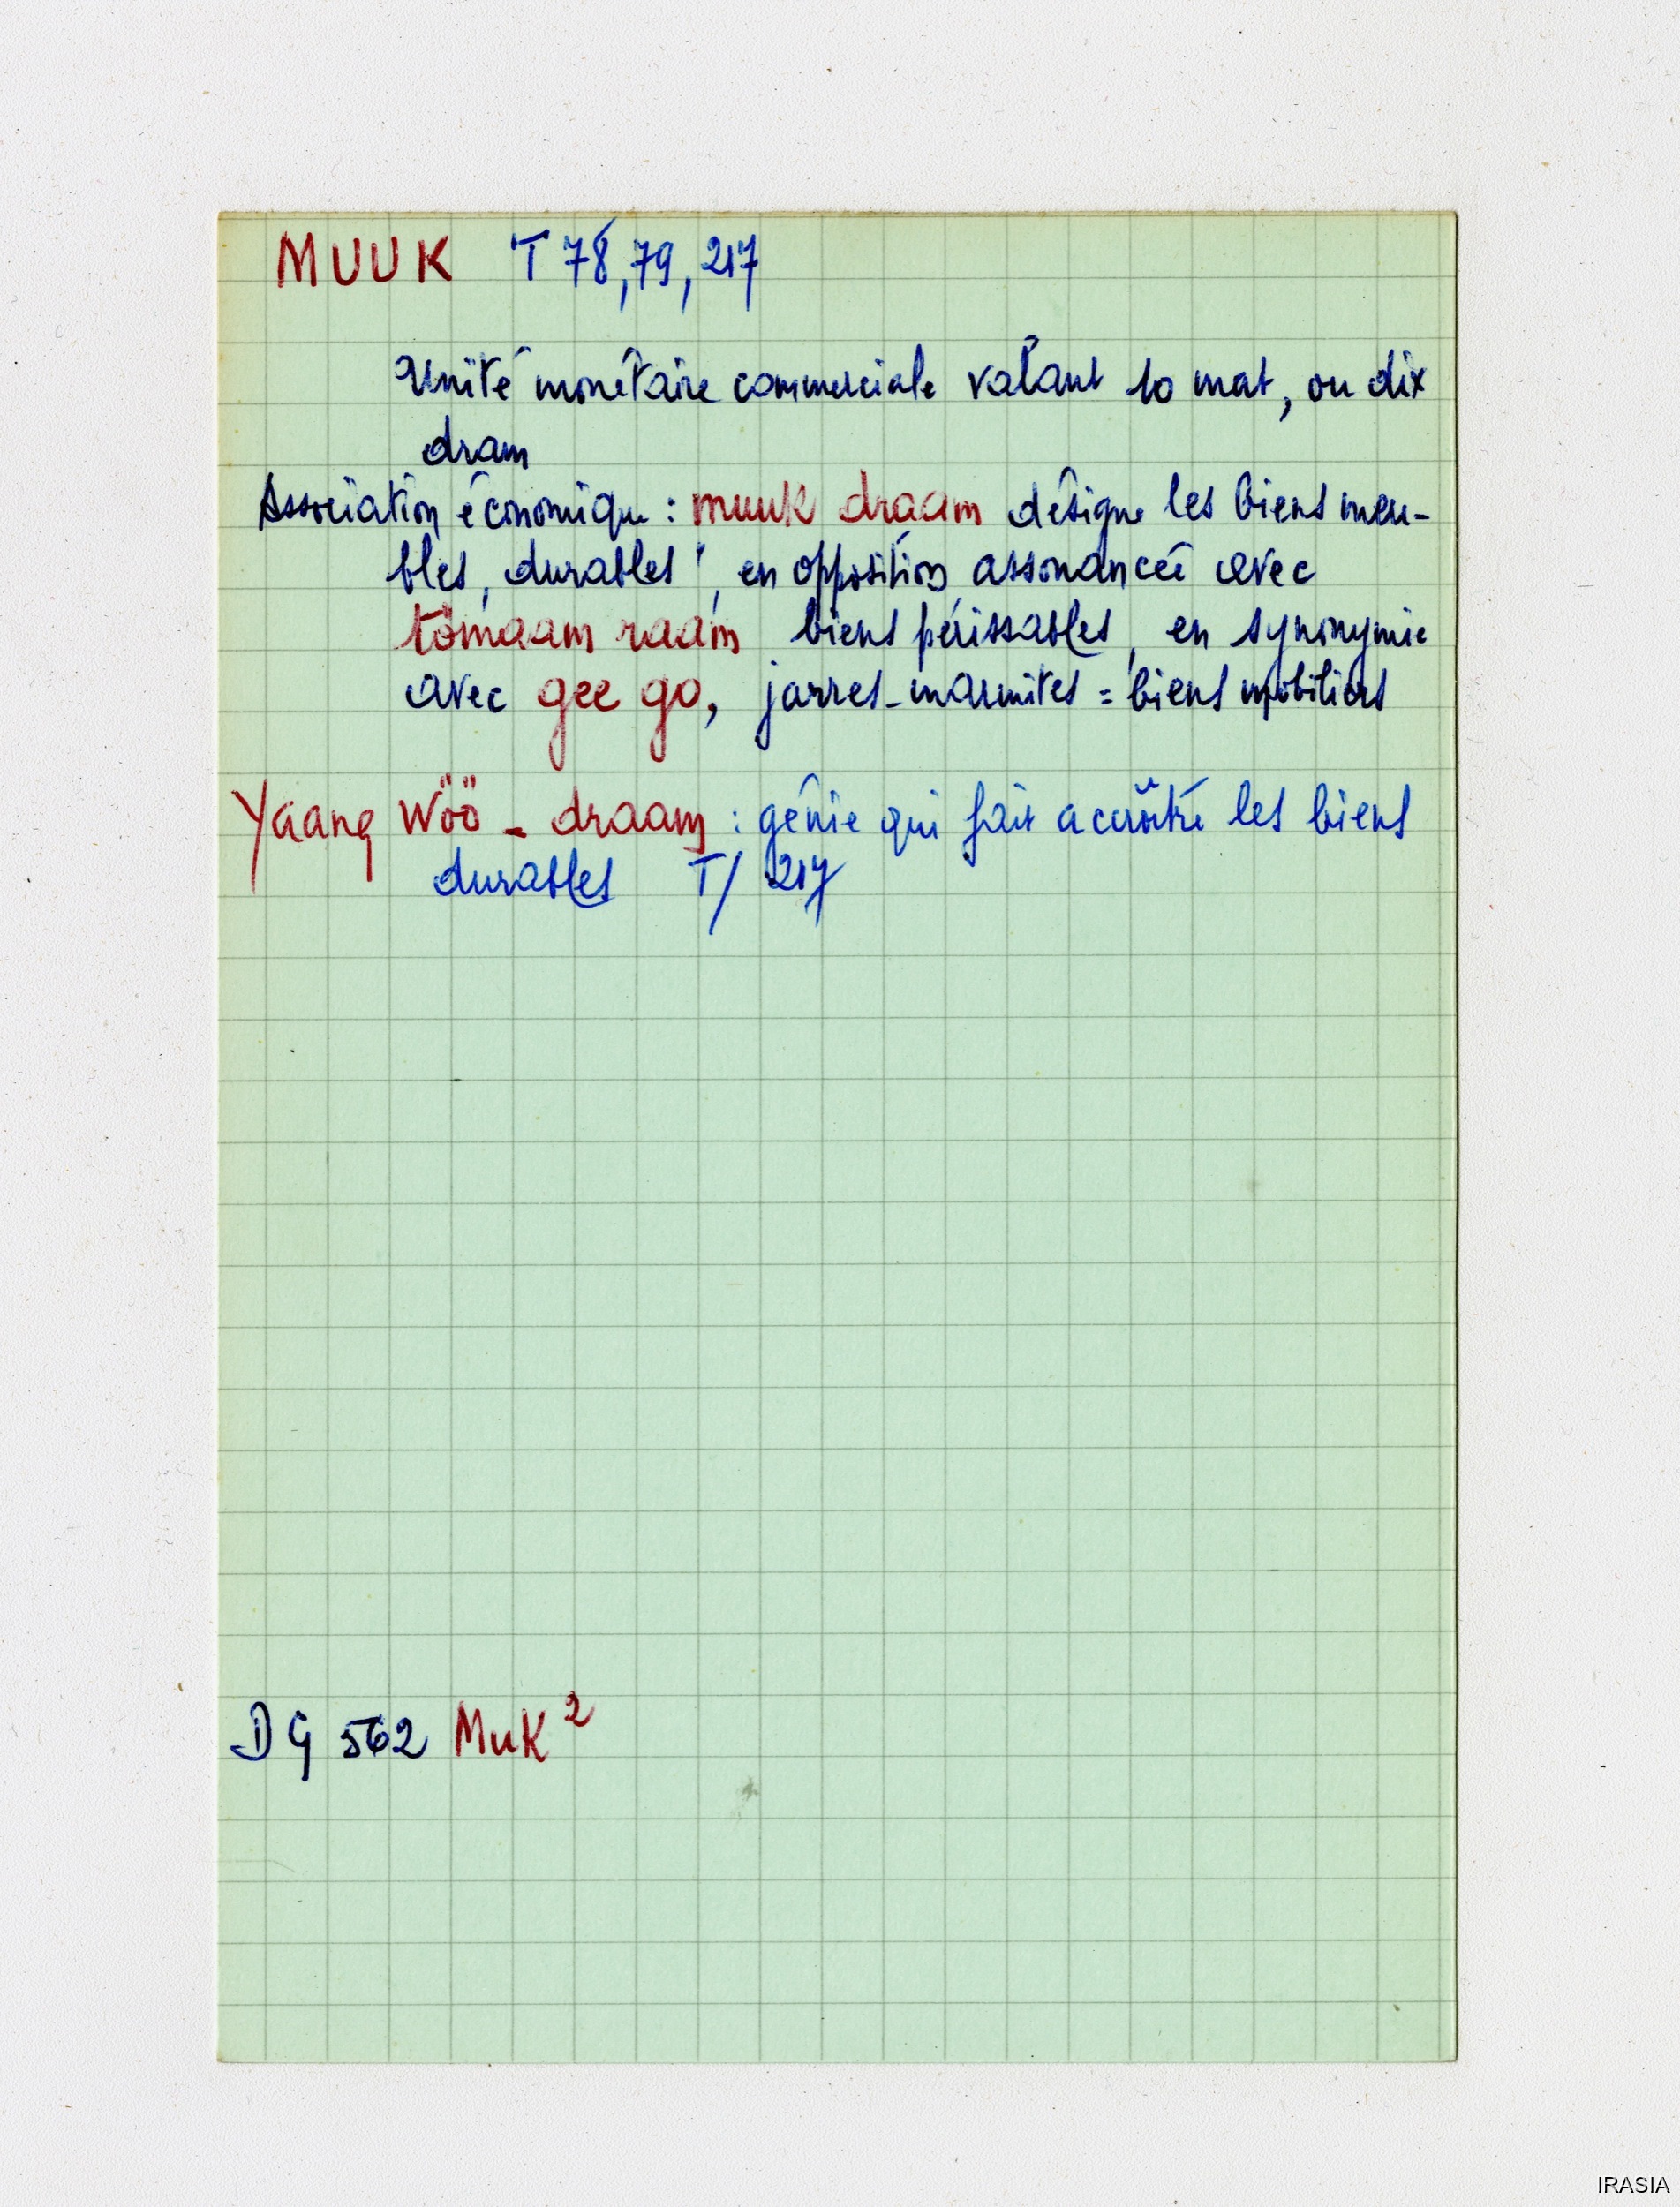 MUUK T 78, 79, 217
Unité monétaire commerciale valant 10 mat, ou dix
dram
Association économique : muuk draam désigne les biens meu-
bles, durables, en opposition assonancée avec
tömaam raam biens périssables, en synonymie
avec gee go, jarres-marmites = biens mobiliers
Yaang Wöö - draam : génie qui fait accroître les biens
durables T/ 217
DG 562 Muk ²
IRASIA